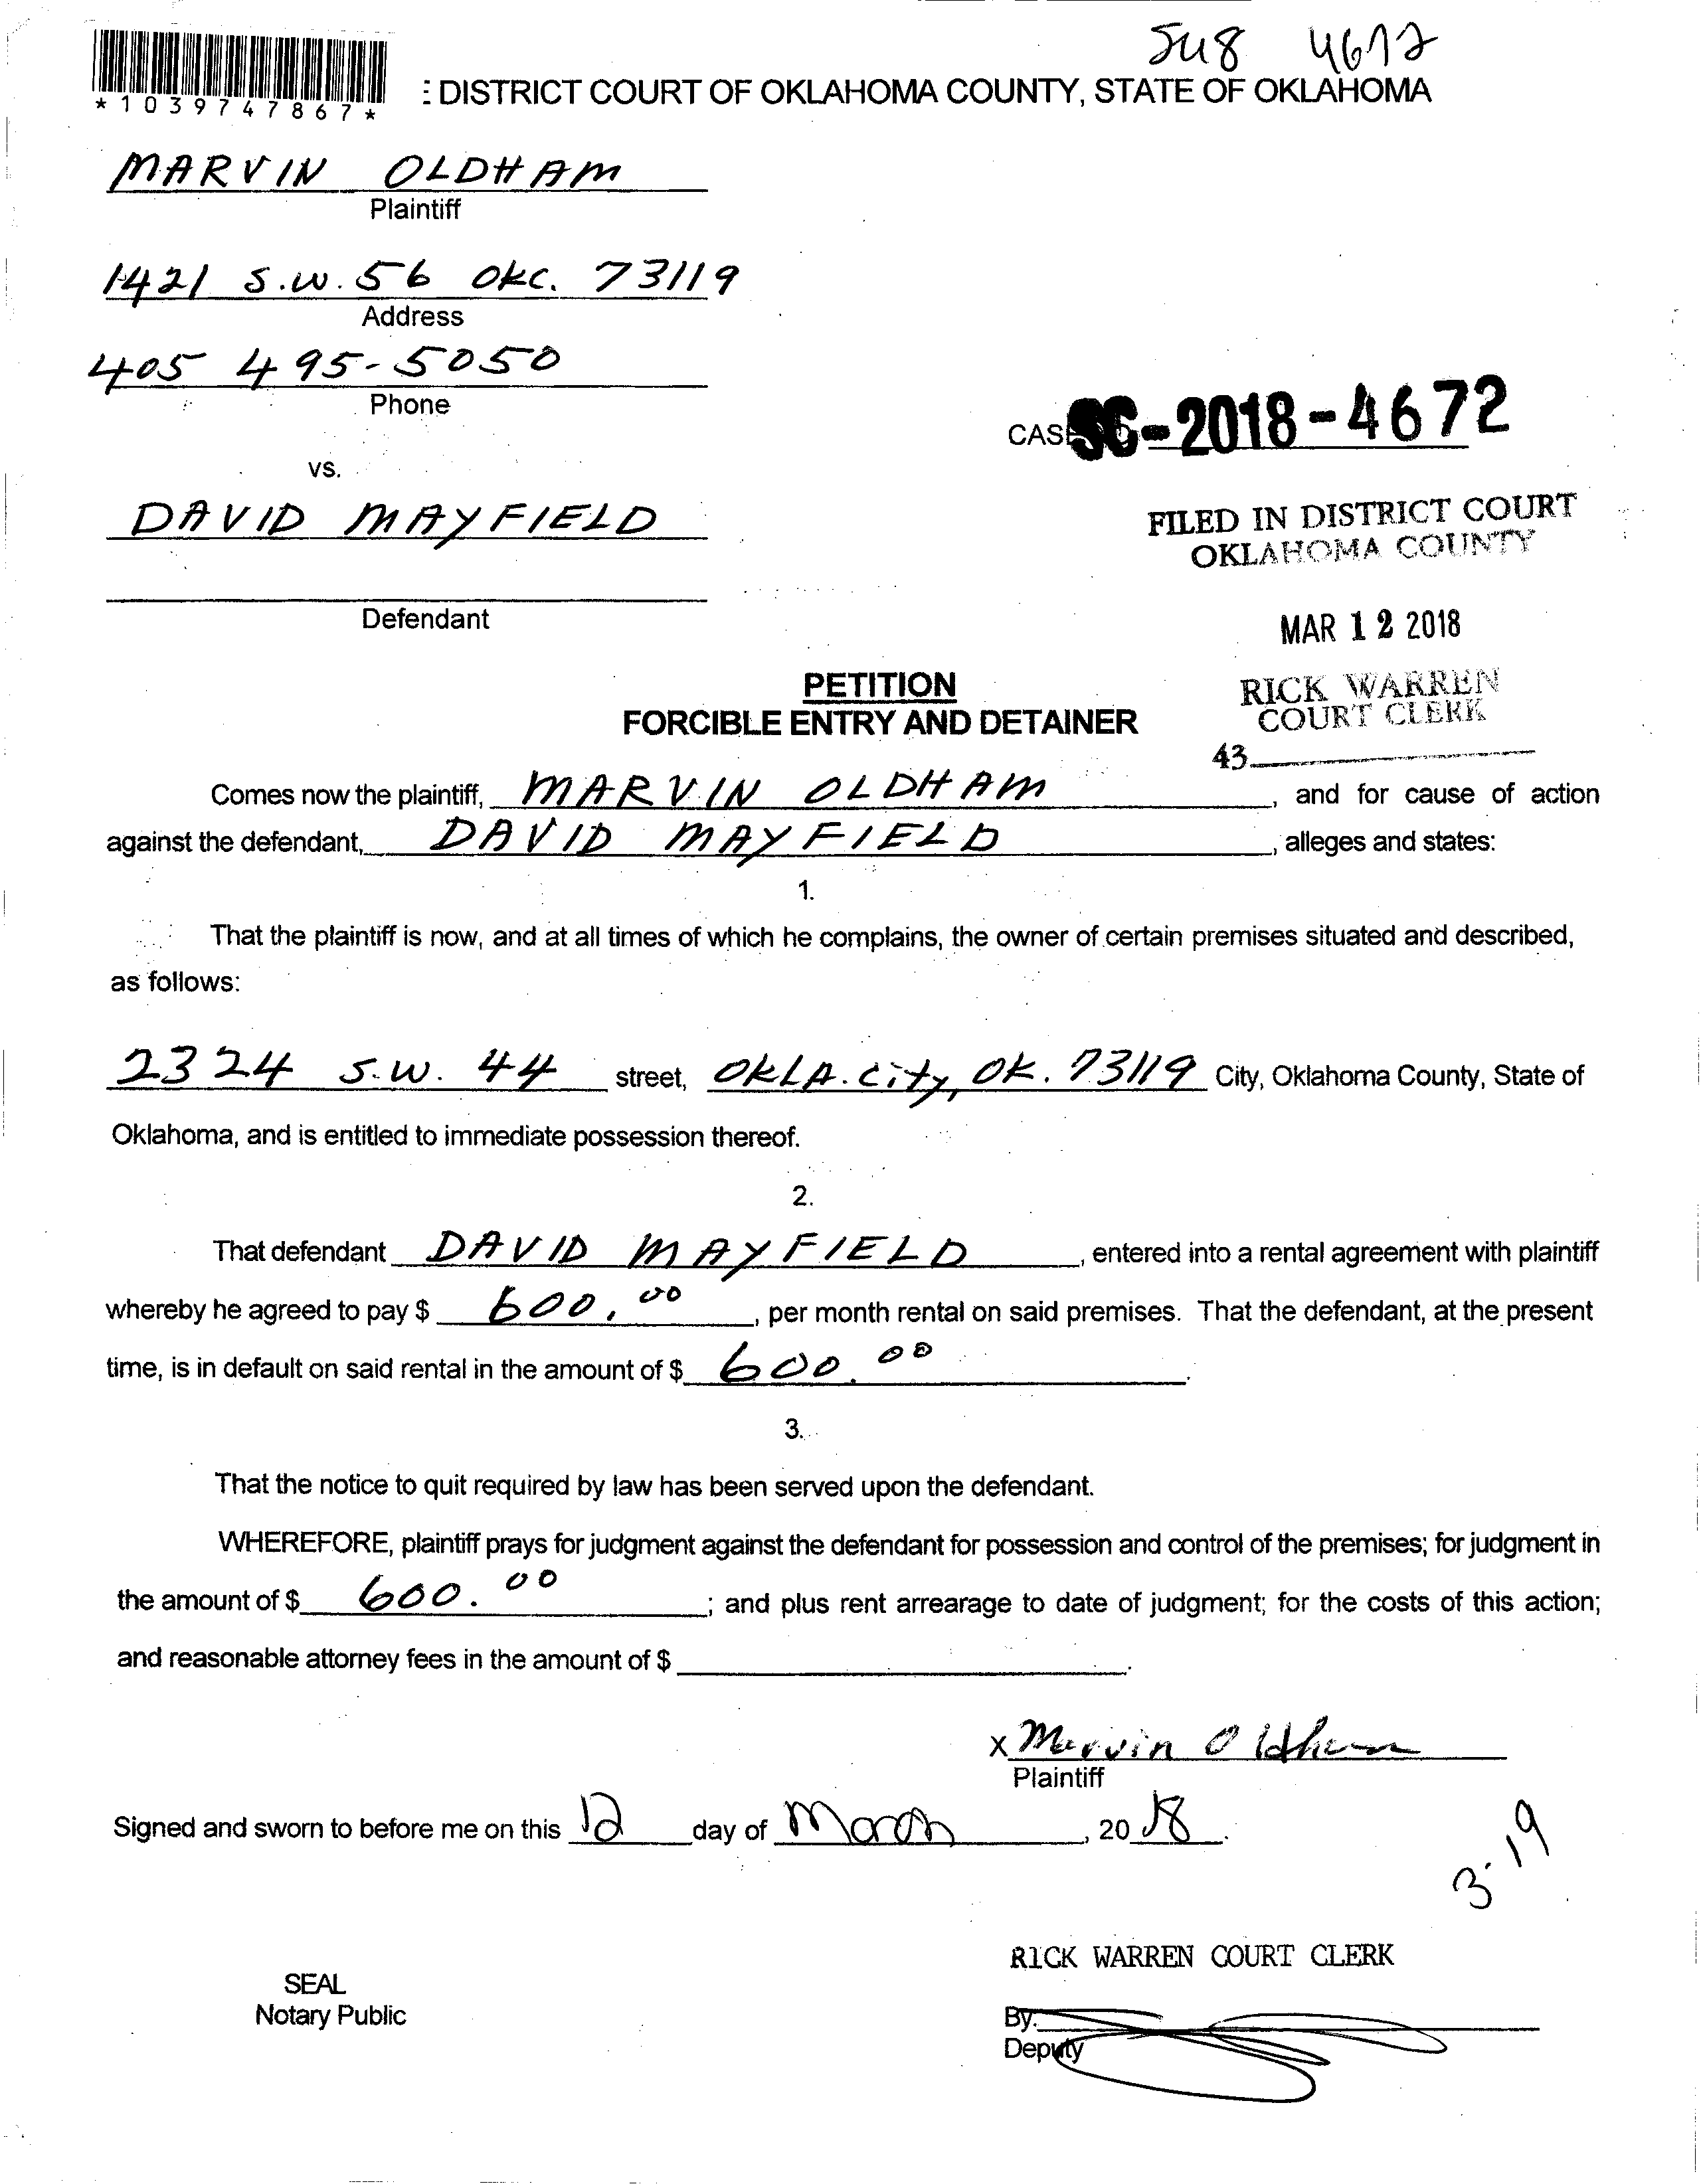 548 4672
*1039747867*
: DISTRICT COURT OF OKLAHOMA COUNTY, STATE OF OKLAHOMA
MARVIN OLDHAM
Plaintiff
1421 S.W. 56 OKC. 73119
Address
405 495-5050
Phone
CASE SC-2018-4672
vs.
DAVID MAYFIELD
FILED IN DISTRICT COURT
OKLAHOMA COUNTY
Defendant
MAR 12 2018
PETITION
RICK WARREN
COURT CLERK
FORCIBLE ENTRY AND DETAINER
43
Comes now the plaintiff, MARVIN OLDHAM, and for cause of action
against the defendant, DAVID MAYFIELD, alleges and states:
1.
That the plaintiff is now, and at all times of which he complains, the owner of certain premises situated and described,
as follows:
2324 S.W. 44 street, OKLA. City, OK. 73119 City, Oklahoma County, State of
Oklahoma, and is entitled to immediate possession thereof.
2.
That defendant DAVID MAYFIELD, entered into a rental agreement with plaintiff
whereby he agreed to pay $ 600.00, per month rental on said premises. That the defendant, at the present
time, is in default on said rental in the amount of $ 600.00.
3.
That the notice to quit required by law has been served upon the defendant.
WHEREFORE, plaintiff prays for judgment against the defendant for possession and control of the premises; for judgment in
the amount of $ 600.00; and plus rent arrearage to date of judgment; for the costs of this action;
and reasonable attorney fees in the amount of $ .
X Marvin Oldham
Plaintiff
Signed and sworn to before me on this 12 day of March, 2018.
3-19
RICK WARREN COURT CLERK
SEAL
Notary Public
By:
Deputy